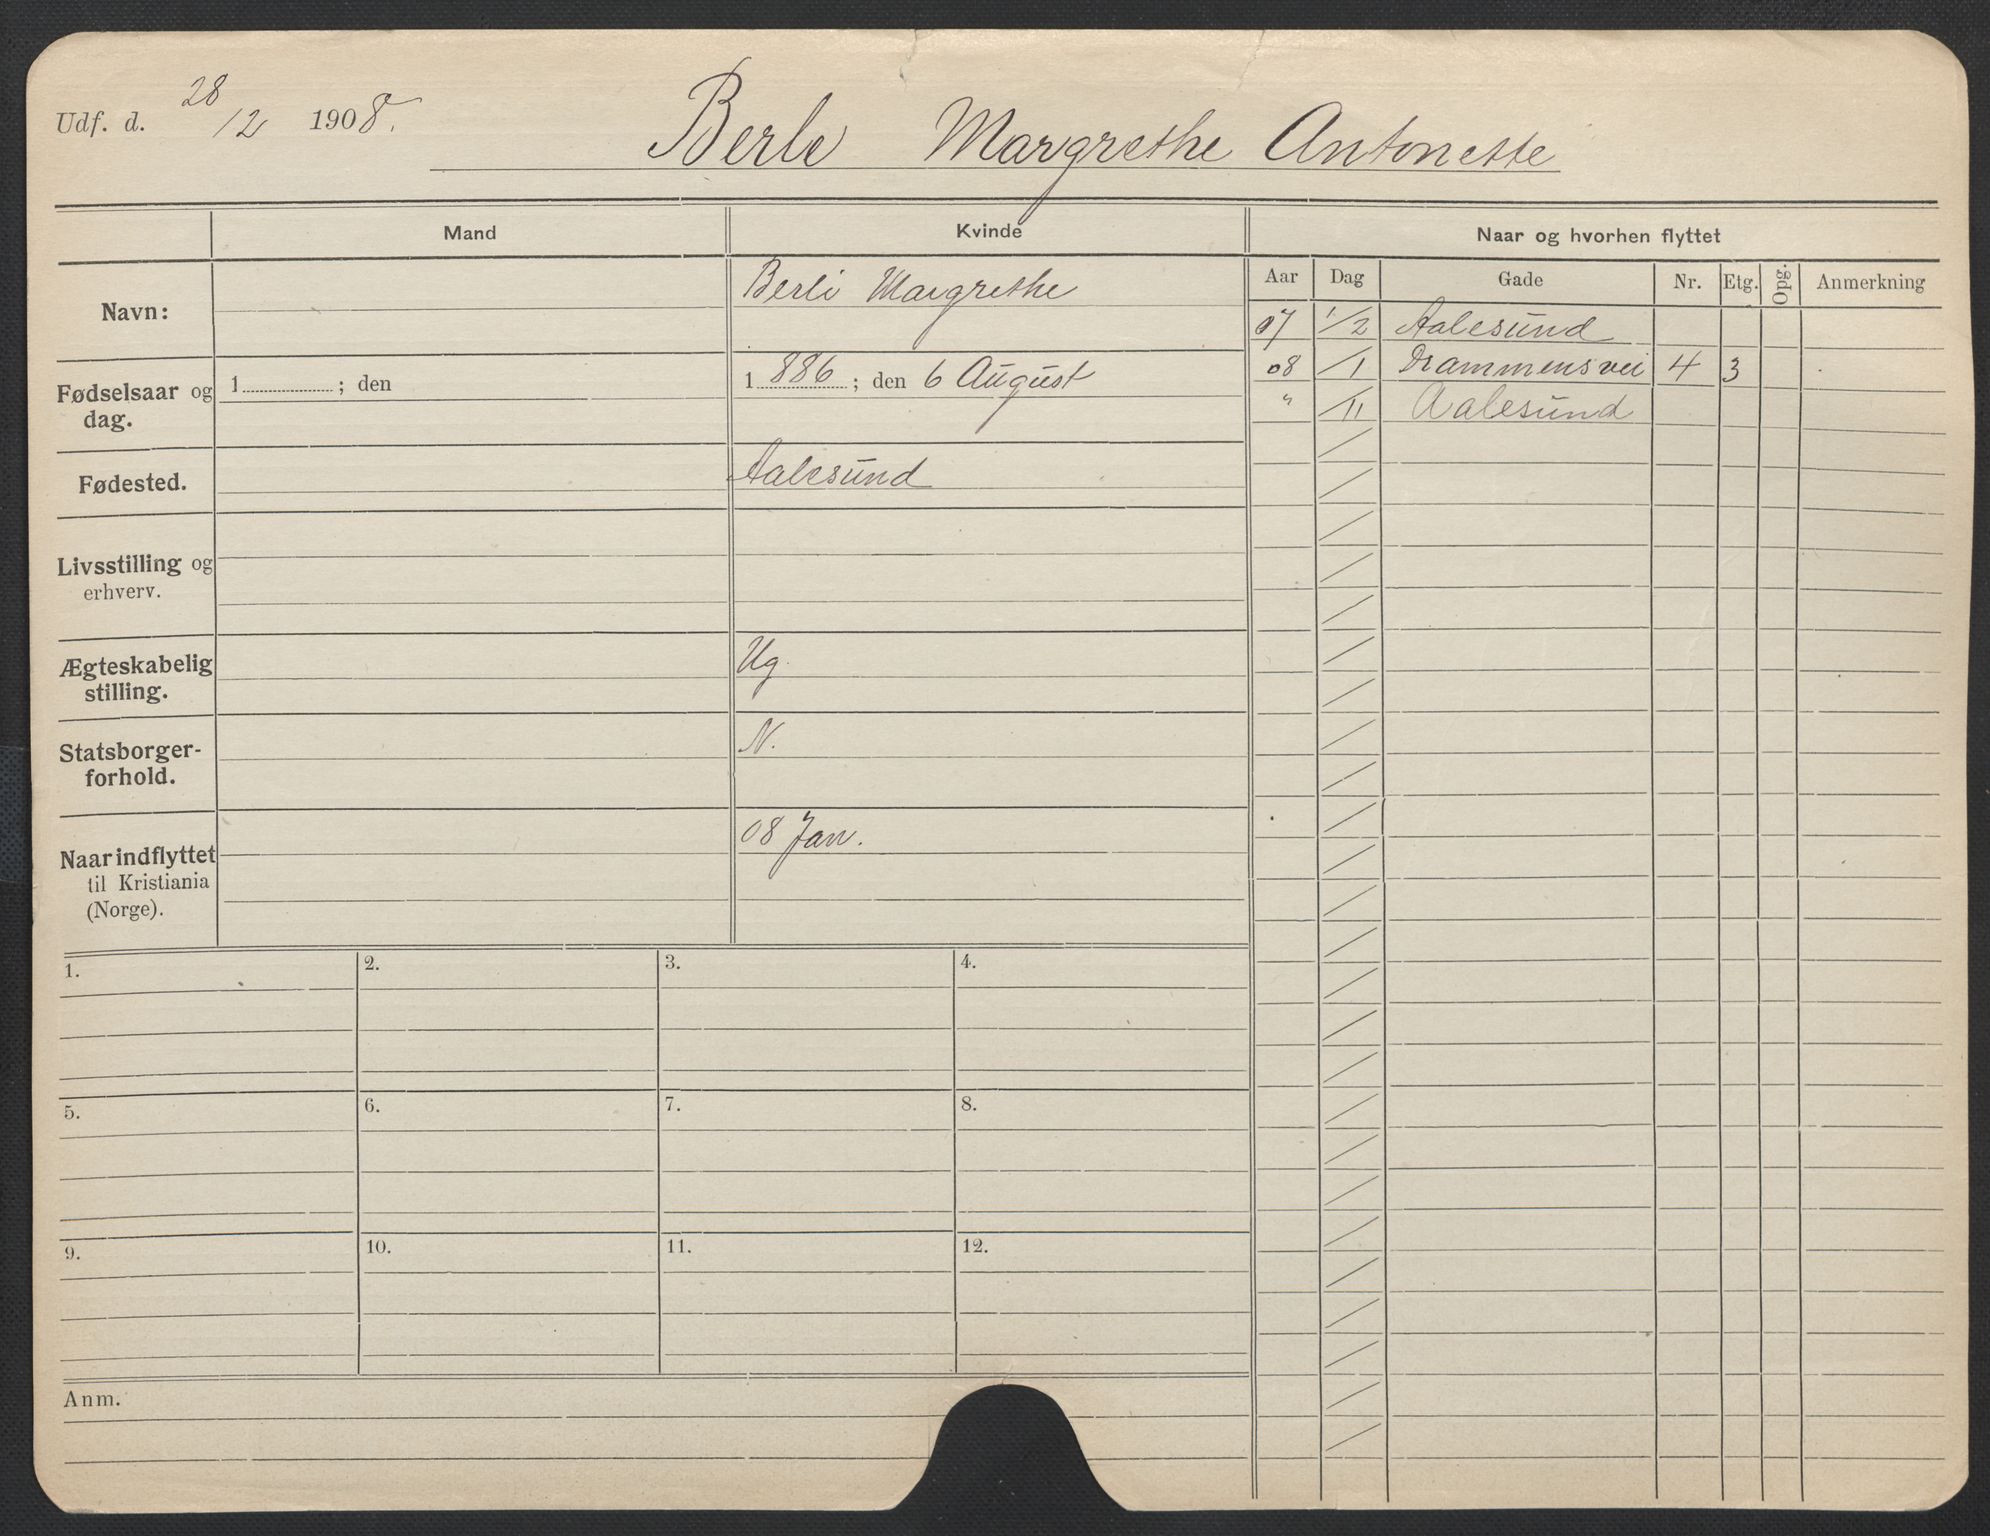 Udf. d. 28/12 1908.
Berle Margrethe Antonette
Mand
Kvinde
Naar og hvorhen flyttet
Navn:
Berli Margrethe
Fødselsaar og dag.
1 ; den
1 886 ; den 6 August
Fødested.
Aalesund
Livsstilling og
erhverv.
Ægteskabelig
stilling.
Ug.
Statsborger-
forhold.
N.
Naar indflyttet
til Kristiania
(Norge).
08 Jan.
Aar Dag Gade Nr. Etg. Opg. Anmerkning
07 1/2 Aalesund
08 /1 Drammensvei 4 3
" /11 Aalesund
1. 2. 3. 4.
5. 6. 7. 8.
9. 10. 11. 12.
Anm.